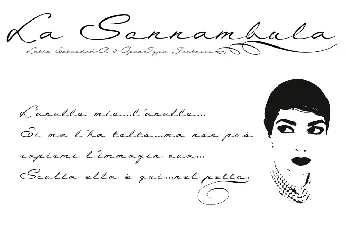 La Sonnambula
L'anello mio...l'anello...
Ei me l'ha tolto...ma non può
rapirmi l'immagin sua...
Sculta ella è qui...nel petto.